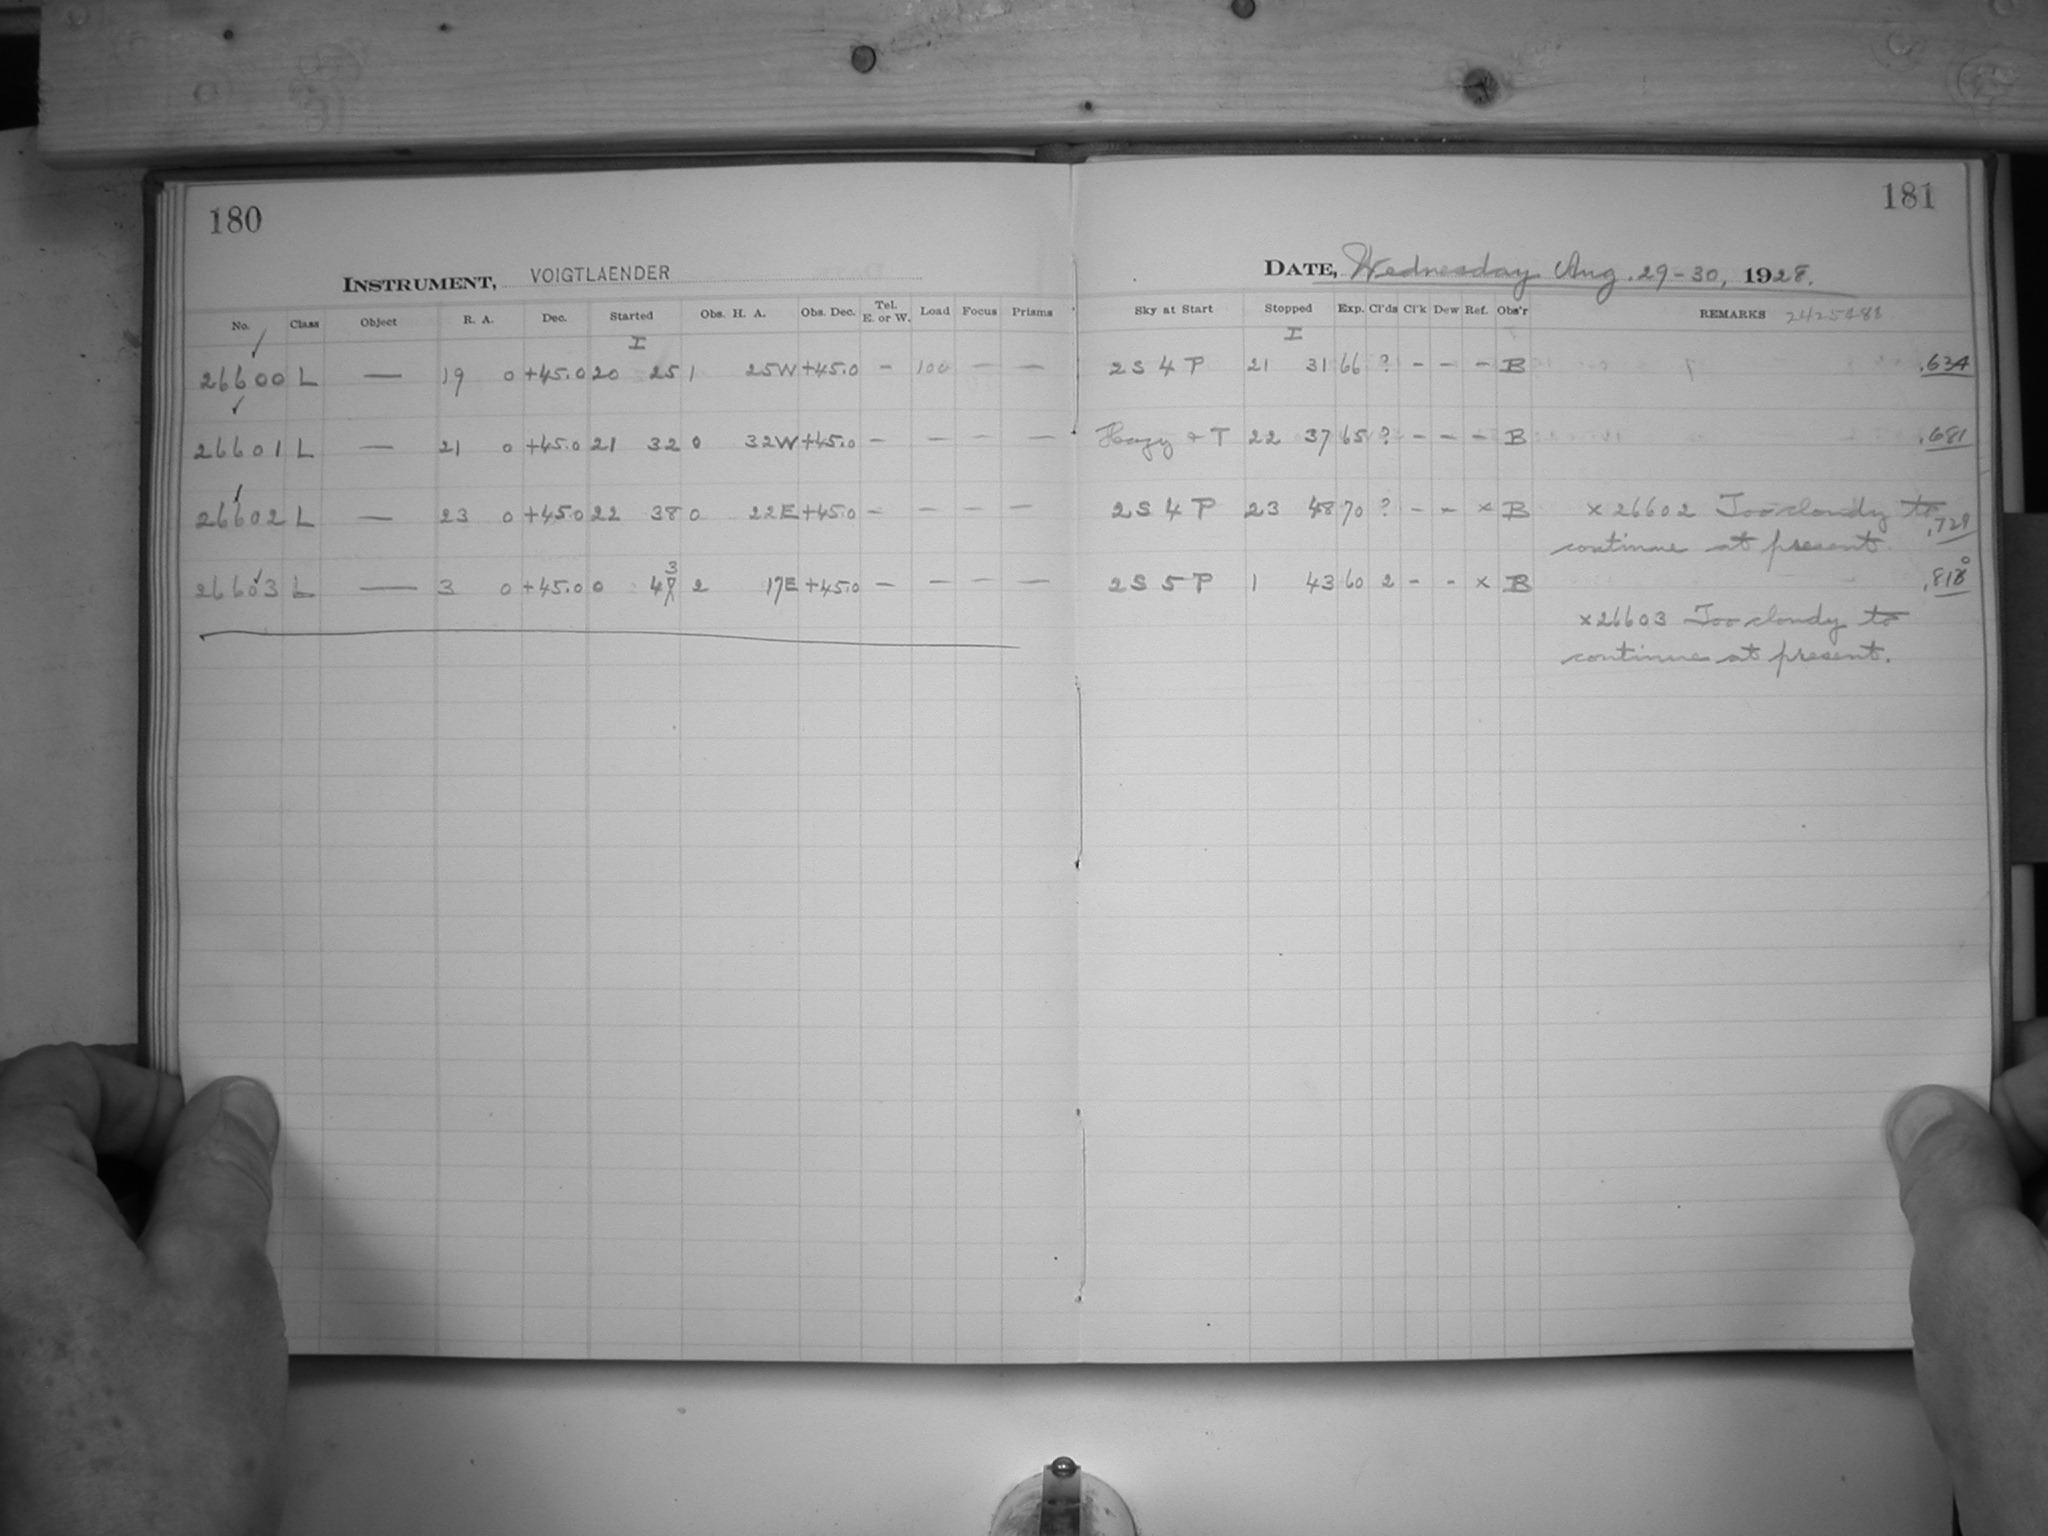 180
INSTRUMENT, VOIGTLAENDER
No. Class Object R. A. Dec. Started Obs. H. A. Obs. Dec. Tel. E. or W. Load Focus Prisms
I
26600 L — 19 0 +45.0 20 25 1 25W +45.0 — 100 — —
26601 L — 21 0 +45.0 21 32 0 32W +45.0 — — — —
26602 L — 23 0 +45.0 22 38 0 22E +45.0 — — — —
26603 L — 3 0 +45.0 0 43 2 17E +45.0 — — — —
181
DATE, Wednesday Aug. 29-30, 1928.
Sky at Start Stopped Exp. Cl'ds Cl'k Dew Ref. Obs'r REMARKS
I
2 S 4 P 21 31 66 ? - - - B .634
Hazy + T 22 37 65 ? - - - B .681
2 S 4 P 23 48 70 ? - - x B x 26602 Too cloudy to .729
continue at present.
2 S 5 P 1 43 60 2 - - x B
x 26603 Too cloudy to
continue at present.